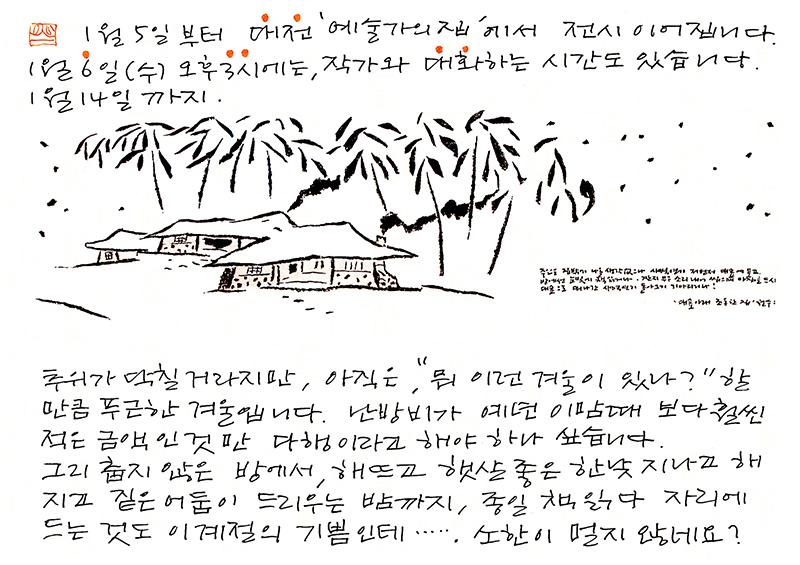 1월 5일부터 대전 '예술가의집'에서 전시 이어집니다.
1월 6일(수) 오후3시에는, 작가와 대화하는 시간도 있습니다.
1월 14일까지.
추위가 닥칠거라지만, 아직은, "뭐 이런 겨울이 있나?" 할
만큼 푸근한 겨울입니다. 난방비가 예년 이맘때 보다 훨씬
적은 금액인것만 다행이라고 해야 하나 싶습니다.
그리 춥지 않은 방에서, 해뜨고 햇살 좋은 한낮 지나고 해
지고 짙은 어둠이 드리우는 밤까지, 종일 책읽다 자리에
드는 것도 이계절의 기쁨인데 ····· . 소한이 멀지 않네요?